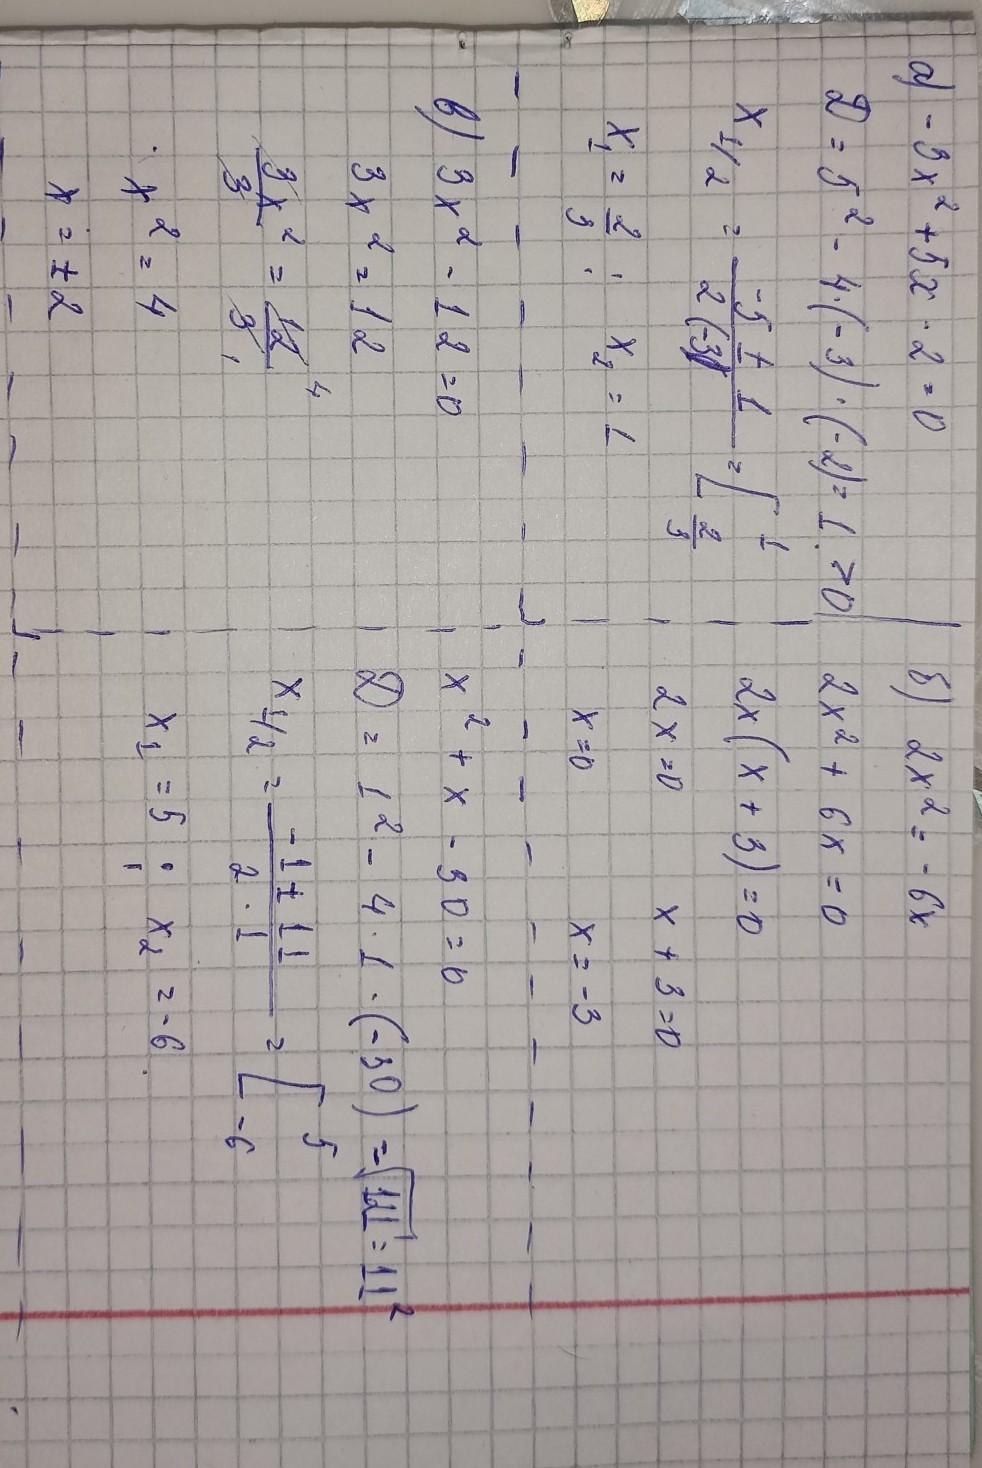 а) -3x² + 5x - 2 = 0
D = 5² - 4·(-3)·(-2) = 1 > 0
x1/2 = (-5 ± 1)/(2(-3)) = [ 1 2/3
x₁ = 2/3 ; x₂ = 1
б) 2x² = -6x
2x² + 6x = 0
2x(x + 3) = 0
2x = 0 x + 3 = 0
x = 0 x = -3
в) 3x² - 12 = 0
3x² = 12
3x²/3 = 12/3 4
x² = 4
x = ±2
x² + x - 30 = 0
D = 1² - 4·1·(-30) = √121 = 11²
x1/2 = (-1 ± 11)/(2·1) = [ 5 -6
x₁ = 5 ; x₂ = -6